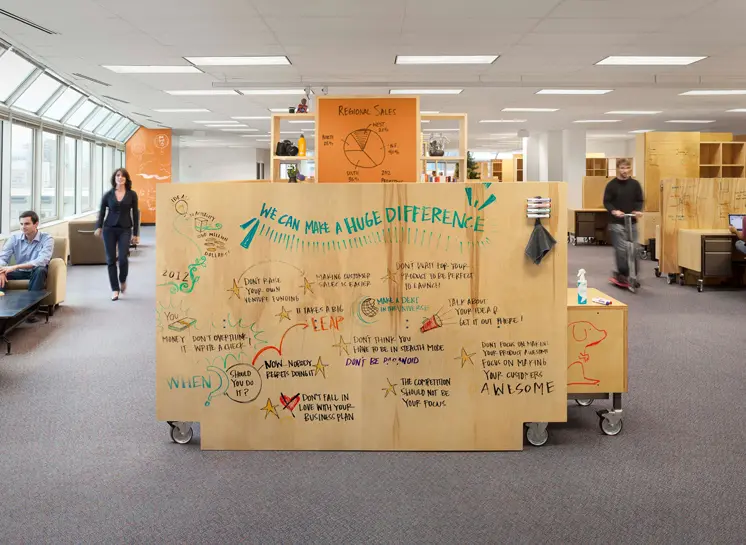 REGIONAL SALES
WEST
NORTH
N.E.
SOUTH
WE CAN MAKE A HUGE DIFFERENCE
IDEA
ONE MILLION
DOLLARS
2012
DON'T RAISE
YOUR OWN
VENTURE FUNDING
MAKING CUSTOMER
SALES IS EASIER
DON'T WAIT FOR YOUR
PRODUCT TO BE PERFECT
TO LAUNCH!
YOU
IT TAKES A BIG
LEAP
MAKE A DENT
IN THE UNIVERSE!
TALK ABOUT
YOUR IDEA &
GET IT OUT THERE!
MONEY DON'T OVERTHINK
IT WRITE A CHECK!
DON'T THINK YOU
HAVE TO BE IN STEALTH MODE
DON'T BE PARANOID
DON'T FOCUS ON MAKING
YOUR PRODUCT AWESOME
FOCUS ON MAKING
YOUR CUSTOMERS
AWESOME
WHEN
SHOULD
YOU DO
IT?
NOW. NOBODY
REGRETS DOING IT
DON'T FALL IN
LOVE WITH YOUR
BUSINESS PLAN
THE COMPETITION
SHOULD NOT BE
YOUR FOCUS